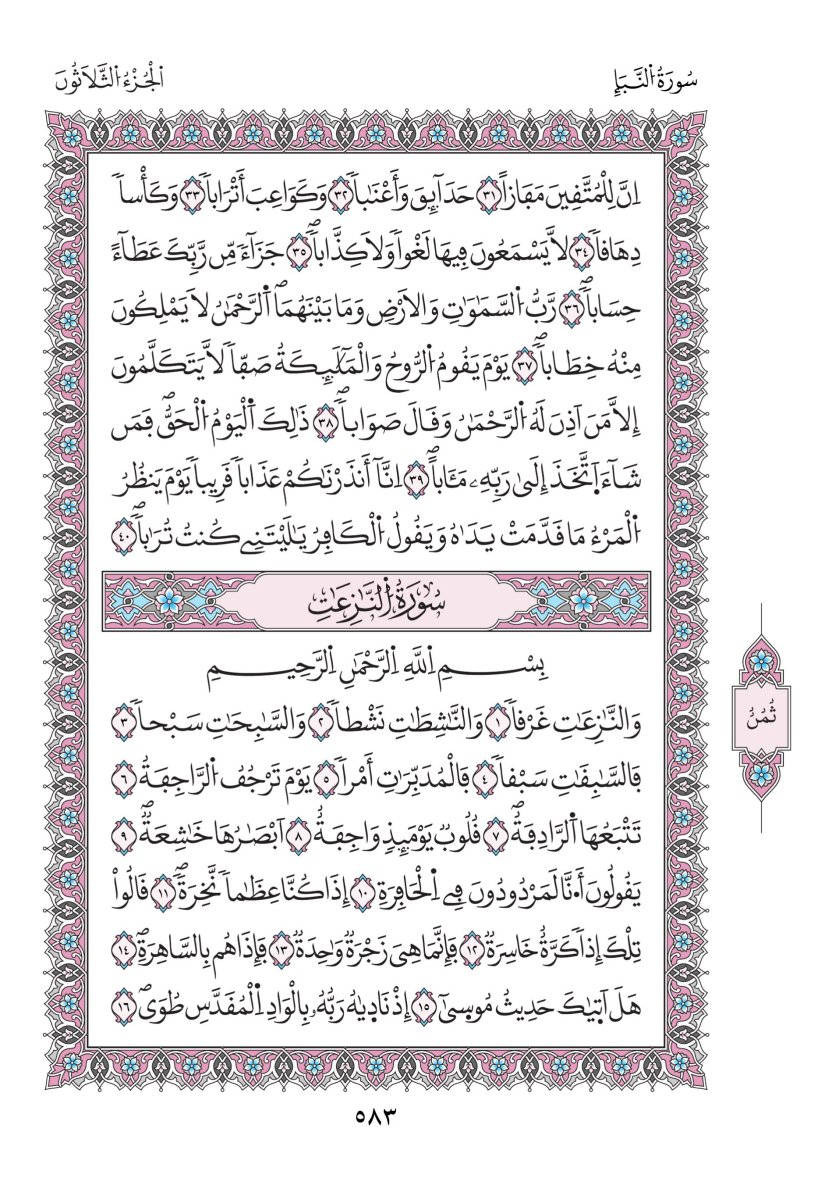 سُورَةُ اُ۬لنَّبَإِ
اَ۬لْجُزْءُ اُ۬لثَّلَاثُونَ
اِنَّ لِلْمُتَّقِينَ مَفَازاً ٣١ حَدَآئِقَ وَأَعْنَٰباٗ ٣٢ وَكَوَاعِبَ أَتْرَاباٗ ٣٣ وَكَأْساٗ
دِهَافاٗ ٣٤ لَّا يَسْمَعُونَ فِيهَا لَغْواٗ وَلَا كِذَّاباٗۖ ٣٥ جَزَآءٗ مِّن رَّبِّكَ عَطَآءً
حِسَاباٗۖ ٣٦ رَّبُّ اُ۬لسَّمَٰوَٰتِ وَالَارْضِ وَمَا بَيْنَهُمَاۖ اَ۬لرَّحْمَٰنُ لَا يَمْلِكُونَ
مِنْهُ خِطَاباٗۖ ٣٧ يَوْمَ يَقُومُ اُ۬لرُّوحُ وَالْمَلَٰٓئِكَةُ صَفّاٗ لَّا يَتَكَلَّمُونَ
إِلَّا مَنَ اَذِنَ لَهُ اُ۬لرَّحْمَٰنُ وَقَالَ صَوَاباٗۖ ٣٨ ذَٰلِكَ اَ۬لْيَوْمُ اُ۬لْحَقُّۖ فَمَن
شَآءَ اَ۪تَّخَذَ إِلَىٰ رَبِّهِۦ مَـَٔاباًۖ ٣٩ اِنَّآ أَنذَرْنَٰكُمْ عَذَاباٗ قَرِيباٗ يَوْمَ يَنظُرُ
اُ۬لْمَرْءُ مَا قَدَّمَتْ يَدَاهُ وَيَقُولُ اُ۬لْكَافِرُ يَٰلَيْتَنِے كُنتُ تُرَٰباٗۖ ٤٠
سُورَةُ اُ۬لنَّٰزِعَٰتِ
بِسْمِ اِ۬للَّهِ اِ۬لرَّحْمَٰنِ اِ۬لرَّحِيمِ
وَالنَّٰزِعَٰتِ غَرْقاٗ ١ وَالنَّٰشِطَٰتِ نَشْطاٗ ٢ وَالسَّٰبِحَٰتِ سَبْحاٗ ٣
فَالسَّٰبِقَٰتِ سَبْقاٗ ٤ فَالْمُدَبِّرَٰتِ أَمْراٗ ٥ يَوْمَ تَرْجُفُ اُ۬لرَّاجِفَةُ ٦
تَتْبَعُهَا اَ۬لرَّادِفَةُۖ ٧ قُلُوبٞ يَوْمَئِذٖ وَاجِفَةٌ ٨ اَبْصَٰرُهَا خَٰشِعَةٞۖ ٩
يَقُولُونَ أَ۟نَّا لَمَرْدُودُونَ فِے اِ۬لْحَافِرَةِ ١٠ إِذَا كُنَّا عِظَٰماٗ نَّخِرَةٗۖ ١١ قَالُواْ
تِلْكَ إِذاٗ كَرَّةٌ خَاسِرَةٞ ١٢ فَإِنَّمَا هِيَ زَجْرَةٞ وَٰحِدَةٞ ١٣ فَإِذَا هُم بِالسَّاهِرَةِۖ ١٤
هَلَ اَت۪يٰكَ حَدِيثُ مُوس۪يٰٓ ١٥ إِذْ نَاد۪يٰهُ رَبُّهُۥ بِالْوَادِ اِ۬لْمُقَدَّسِ طُوَىۖ ١٦
ثُمُنُ
٥٨٣